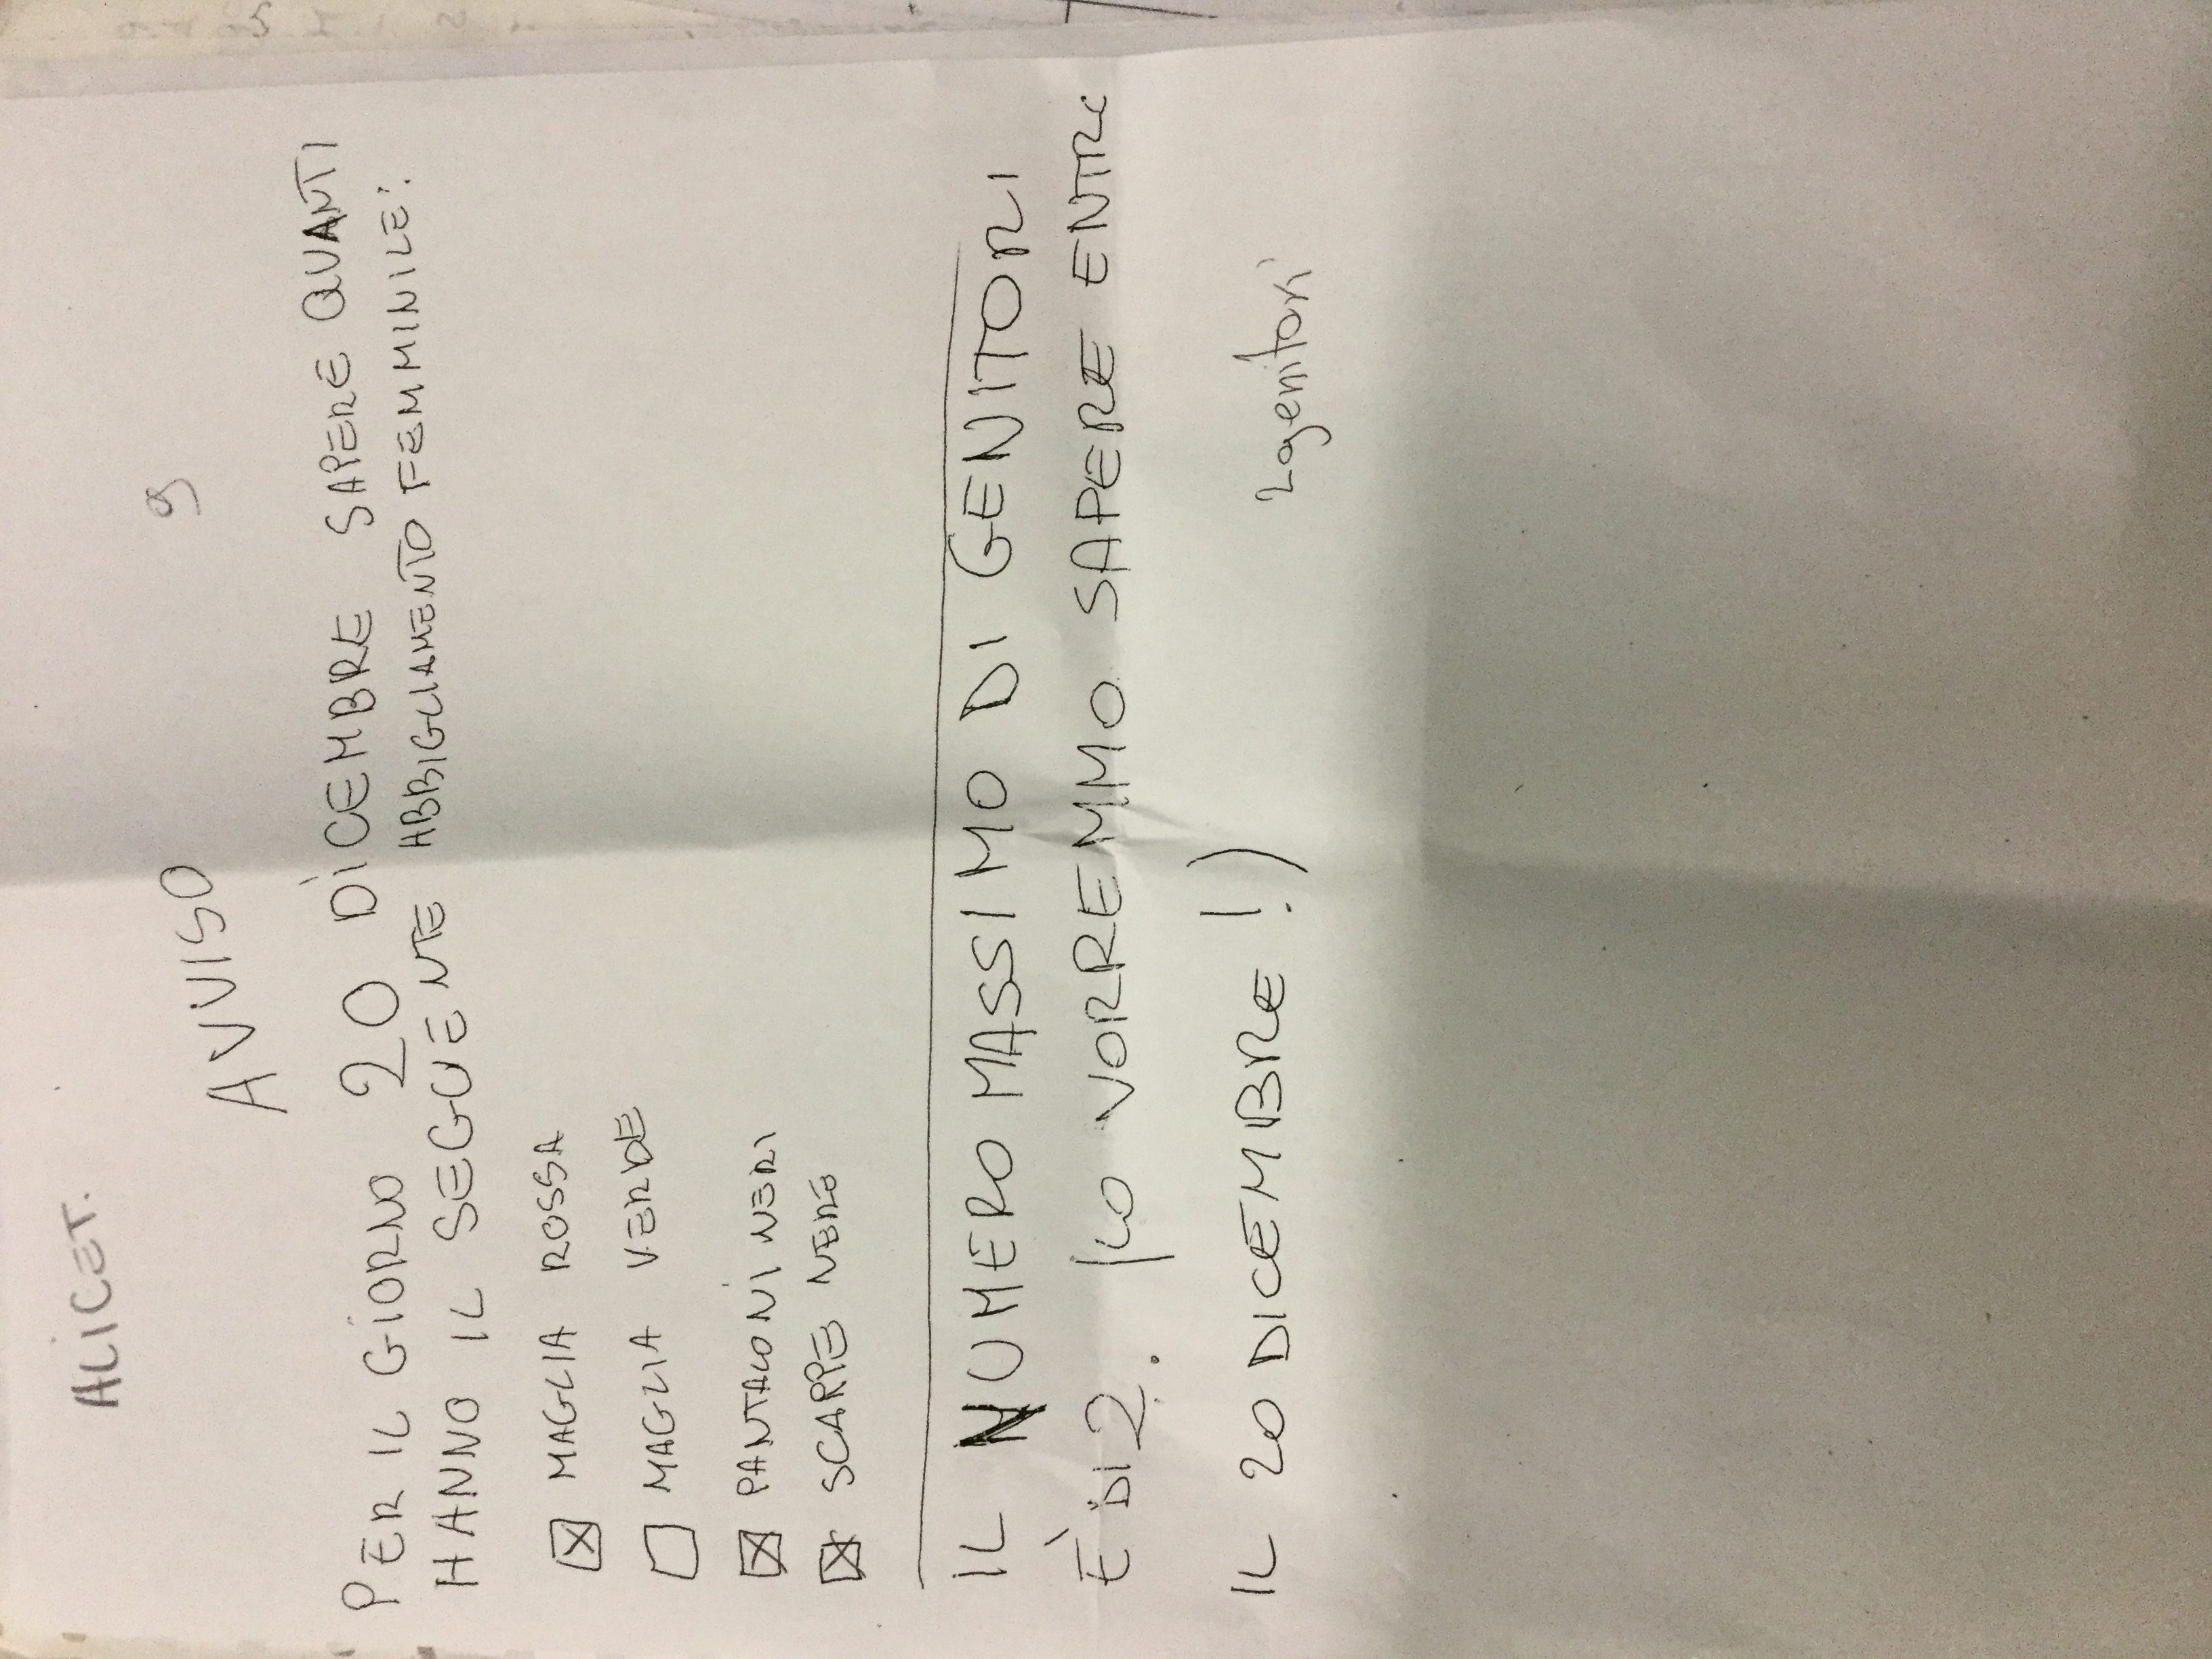 ALICE T.
9
AVVISO
PER IL GIORNO 20 DICEMBRE SAPERE QUANTI
HANNO IL SEGGUENTE ABBIGLIAMENTO FEMMINILE:
☒ MAGLIA ROSSA
☐ MAGLIA VERDE
☒ PANTALONI NERI
☒ SCARPE NERE
IL NUMERO MASSIMO DI GENITORI
È DI 2. (LO VORREMMO SAPERE ENTRO
IL 20 DICEMBRE!)
2 genitori